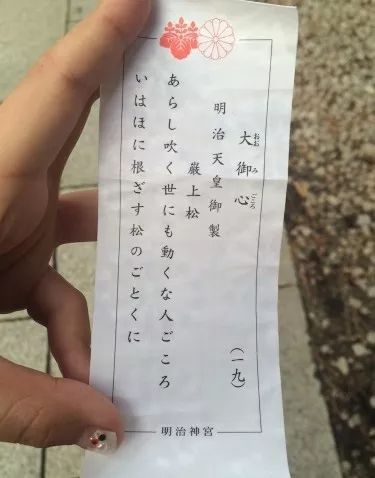 大御心
おお み ごころ
(一九)
明治天皇御製
巌上松
あらし吹く世にも動くな人ごころ
いはほに根ざす松のごとくに
明治神宮